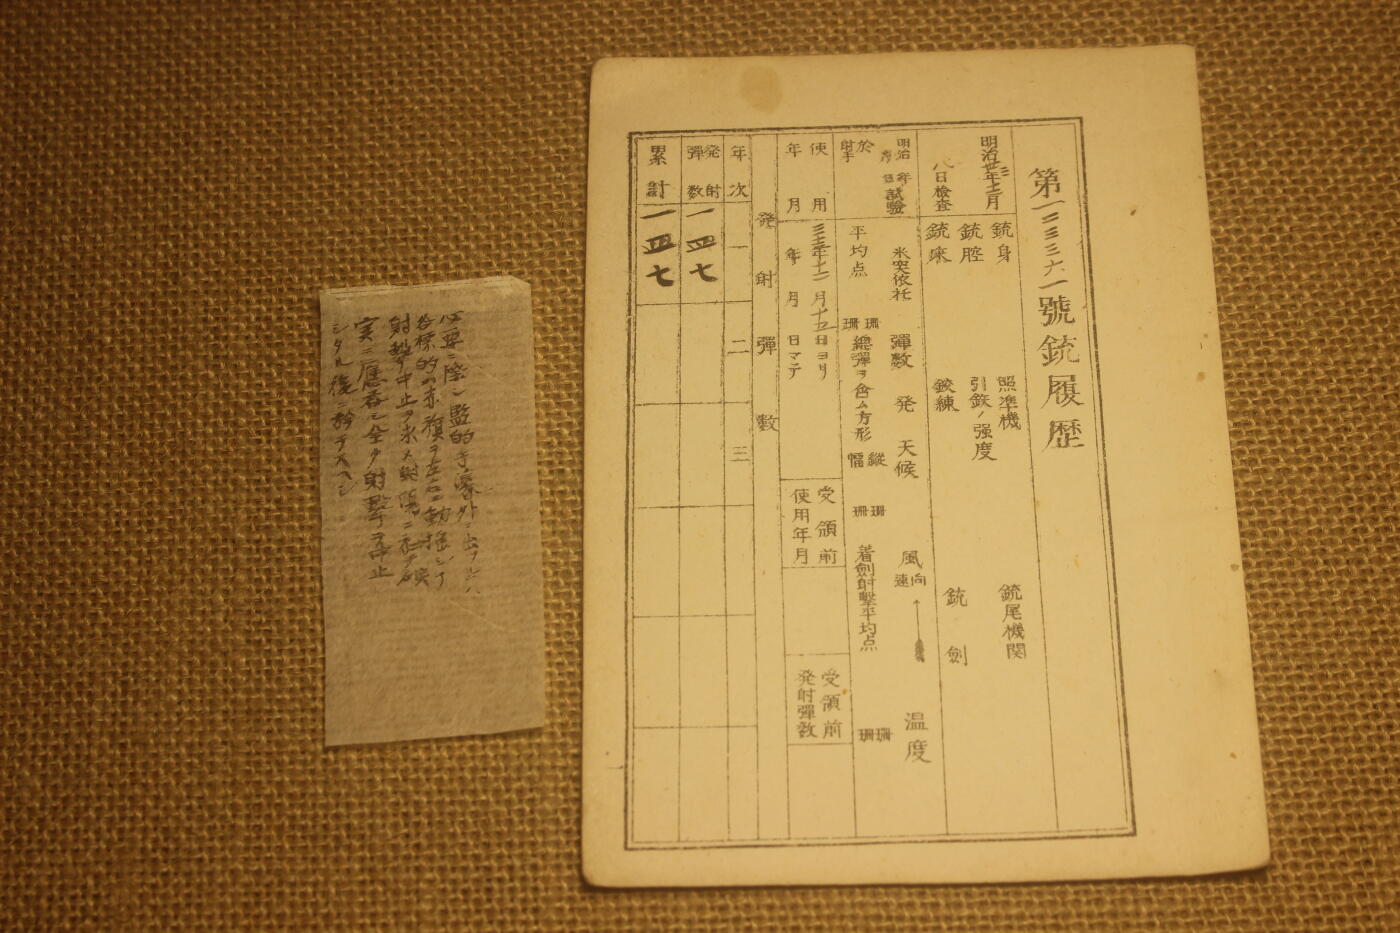 第一二三三六一號銃履歴
明治卅三年十二月
八日検査
銃身
銃腔
銃床
照準機
引鉸ノ强度
鉸練
銃尾機関
銃
劍
明治
年
試驗
於
射手
米突依托
彈数
発
天候
風
向
速
温度
平均点
珊
珊
總彈ヲ含ム方形
縱
幅
珊
珊
着劍射擊平均点
珊
珊
使用
年月
三十三年十二月十五日ヨリ
年
月
日マテ
受領前
使用年月
受領前
発射彈数
発射彈数
年次
一
二
三
発射
彈数
一四七
累計
一四七
必要ニ際シ監的手壕外ニ出ツル
標的ノ赤旗ヲ左右ニ動揺シテ
射擊中止ヲ求メ射場ニ
ニ應答シ全ク射擊ヲ停止
シタル後ニ於テスヘシ